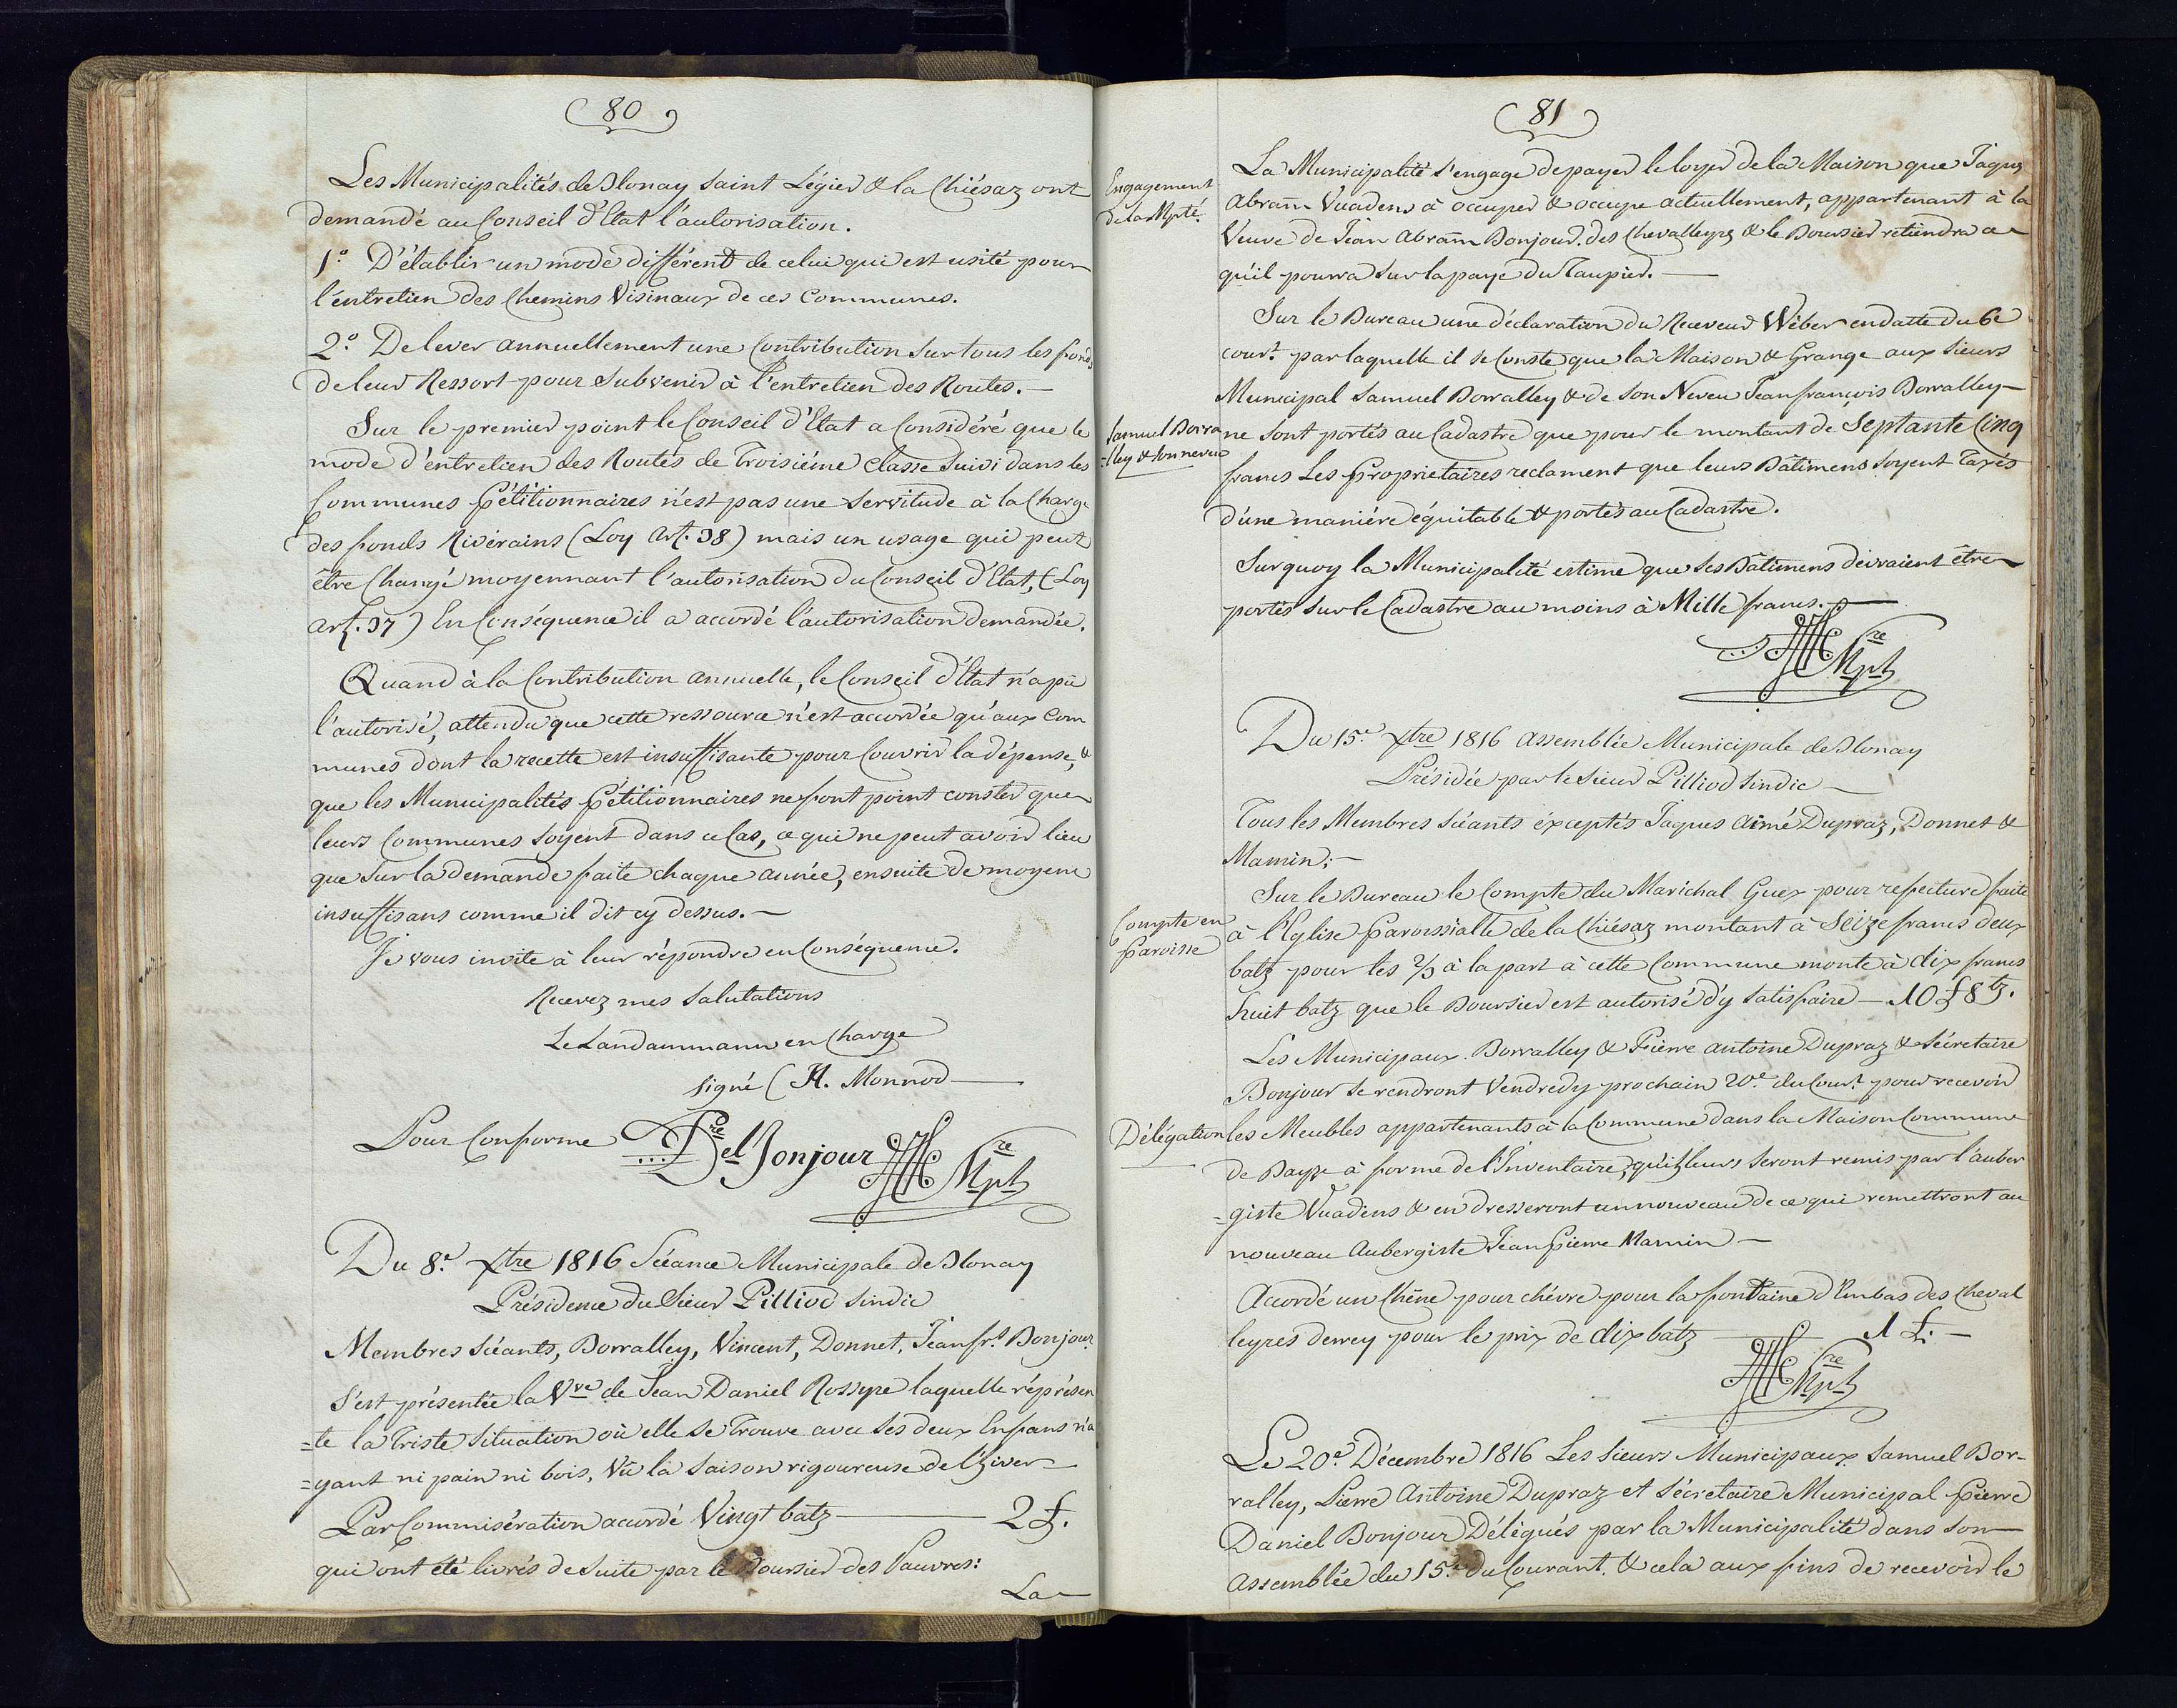 80
Les Municipalités de Blonay Saint Légier & la Chiésaz ont
demandé au Conseil d'Etat l'autorisation.
1.° D'établir un mode différent de celui qui est usité pour
l'entretien des Chemins Visinaux de ces Communes.
2.° De lever annuellement une Contribution sur tous les fonds
de leur Ressort pour Subvenir à l'entretien des Routes. —
Sur le premier point le Conseil d'Etat a Considéré que le
mode d'entretien des Routes de Troisiéme Classe Suivi dans les
Communes Pétitionnaires n'est pas une Servitude à la Charge
des fonds Rivérains (Loy Art. 38) mais un usage qui peut
être Changé moyennant l'autorisation du Conseil d'Etat, (Loy
Art. 37) En Conséquence il a accordé l'autorisation demandée.
Quand à la Contribution annuelle, le Conseil d'Etat n'a pu
l'autorisé, attendu que cette ressource n'est accordée qu'aux Com
munes dont la recette est insuffisante pour Couvrir la dépense, &
que les Municipalités Pétitionnaires ne font point conster que
leurs Communes soyent dans ce Cas, ce qui ne peut avoir lieu
que sur la demande faite chaque année, ensuite de moyens
insuffisans comme il dit cy dessus. —
Je vous invite à leur répondre en Conséquence.
Recevez mes Salutations
Le Landammann en Charge
signé (H. Monnod —
Pour Conforme P.re D.el Bonjour S.re Mpl
Du 8.e Xbre 1816 Séance Municipale de Blonay
Présidence du Sieur Pilliod Sindic
Membres Séants, Borralley, Vincent, Donnet, Jean fr.s Bonjour.
S'est présentée la V.ve de Jean Daniel Rossyre laquelle réprésen
=te la Triste Situation où elle se Trouve avec ses deux Enfans n'a
=yant ni pain ni bois, Vû la saison rigoureuse de l'hiver
Par Commisération accordé Vingt batz — 2 £.
qui ont été livrés de Suite par le Boursier des Pauvres:
La
81
Engagement
de la Mpté.
La Municipalité s'engage de payer le loyer de la Maison que Jaques
Abram Vuadens à occuper & occupe actuellement, appartenant à la
Veuve de Jean Abram Bonjour. des Chevalleyres & le Boursier retiendra ce
qu'il pourra sur la paye du Taupier. —
Sur le Bureau une déclaration du Receveur Wéber en datte du 6e
cour.t par laquelle il se Conste que la Maison & Grange aux Sieurs
Municipal Samuel Borralley & de son Neveu Jean françois Borralley
Samuel Borra
=lley & son neveu
ne sont portés au Cadastre que pour le montant de Septante Cinq
francs Les Proprietaires reclament que leurs Bâtimens soyent Taxés
d'une maniére équitable & portés au Cadastre.
Surquoy la Municipalité estime que ses Bâtimens devraient être
portés sur le Cadastre au moins à Mille francs. —
S.re Mpl
Du 15.e Xbre 1816 Assemblée Municipale de Blonay
Présidée par le Sieur Pilliod Sindic —
Tous les Membres Séants éxceptés Jaques Aimé Dupraz, Donnet &
Mamin; —
Compte en
Paroisse
Sur le Bureau le Compte du Marichal Guex pour refecture faite
à l'Eglise Paroissialle de la Chiésaz montant à Seize francs deux
batz pour les 2/3 à la part à cette Commune monte à dix francs
huit batz que le Boursier est autorisé d'y satisfaire — 10 £ 8 bz.
Les Municipaux. Borralley & Pierre Antoine Dupraz & Sécretaire
Bonjour se rendront Vendredy prochain 20.e du Cour.t pour recevoir
Délégation
les Meubles appartenants à la Commune dans la Maison Commune
de Bayse à forme de l'Inventaire, qu'il leurs seront remis par l'auber
=giste Vuadens & en dresseront un nouveau de ce qui remettront au
nouveau Aubergiste Jean Pierre Mamin —
Accordé un Chêne pour chévre pour la fontaine d'Enbas des Cheval
leyres derrey pour le prix de dix batz — 1 £. —
S.re Mpl
Le 20.e Décembre 1816 Les Sieurs Municipaux Samuel Bor-
ralley, Pierre Antoine Dupraz et Sécretaire Municipal Pierre
Daniel Bonjour Délégués par la Municipalité dans son
Assemblée du 15.e du Courant. & cela aux fins de recevoir le